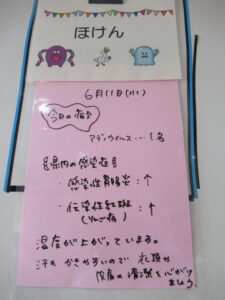 ほけん
6月11日(水)
今日の病気
アデノウイルス…1名
県内の感染症
・感染性胃腸炎:↑
・伝染性紅斑:↑
(りんご病)
湿度が上がっています。
汗も かきやすいので 衣類や
皮膚の清潔を心がけ
ましょう